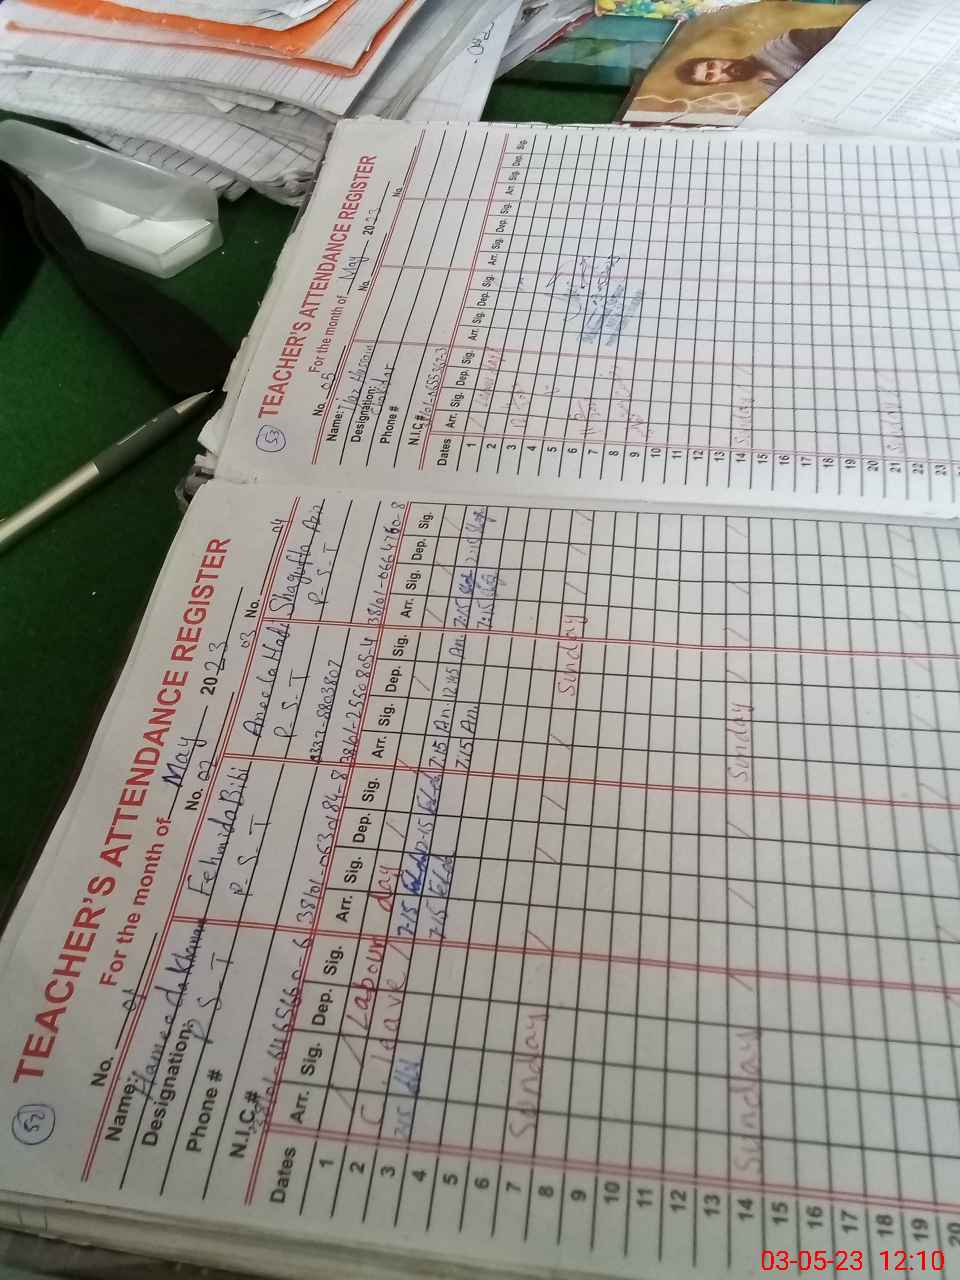 52
TEACHER'S ATTENDANCE REGISTER
For the month of May 2023
No. 01 No. 02 03 No. 04
Name: Hameeda Khanam Fehmida Bibi Aneela Hadi Shagufta Azir
Designation: P S T P. S. T P. S. T P. S. T
Phone # 0337-8803807
N.I.C.# 38101-0530184-8 38101-2550805-4 38101-0664760-8
Dates Arr. Sig. Dep. Sig. Arr. Sig. Dep. Sig. Arr. Sig. Dep. Sig. Arr. Sig. Dep. Sig.
1 Labour day
2 C. Leave 7-15 12-15 7:15 12:45 7:15 12:15
3 7-15 7:15 7:15
4
5
6
7 Sunday Sunday
8
9
10
11
12
13
14 Sunday Sunday
15
16
17
18
19
20
53
TEACHER'S ATTENDANCE REGISTER
For the month of May 2023
No. 05 No. No.
Name:
Designation:
Phone #
N.I.C.#
Dates Arr. Sig. Dep. Sig. Arr. Sig. Dep. Sig. Arr. Sig. Dep. Sig. Arr. Sig. Dep. Sig.
1
2
3
4
5
6
7
8
9
10
11
12
13
14 Sunday
15
16
17
18
19
20
21 Sunday
22
23
03-05-23 12:10